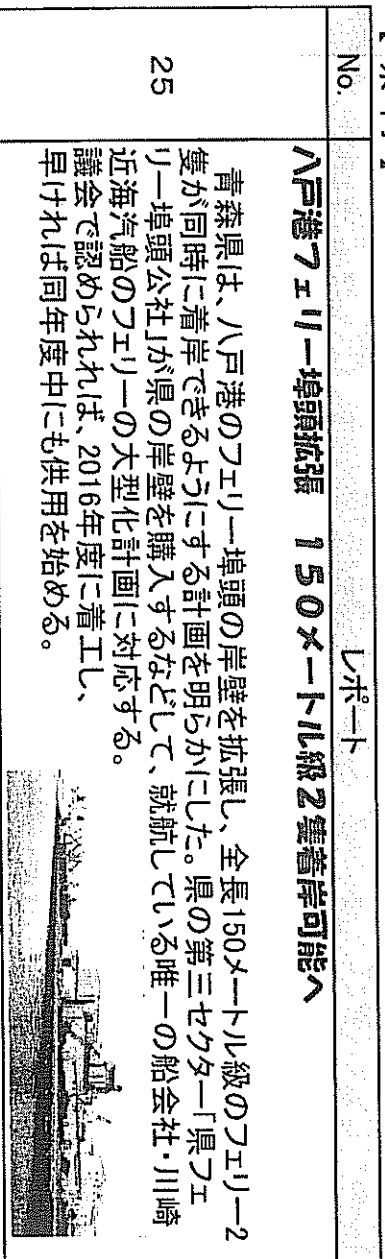 No.
レポート
八戸港フェリー埠頭拡張 150メートル級2隻着岸可能へ
25
青森県は、八戸港のフェリー埠頭の岸壁を拡張し、全長150メートル級のフェリー2
隻が同時に着岸できるようにする計画を明らかにした。県の第三セクター「県フェ
リー埠頭公社」が県の岸壁を購入するなどして、就航している唯一の船会社・川崎
近海汽船のフェリーの大型化計画に対応する。
議会で認められれば、2016年度に着工し、
早ければ同年度中にも供用を始める。